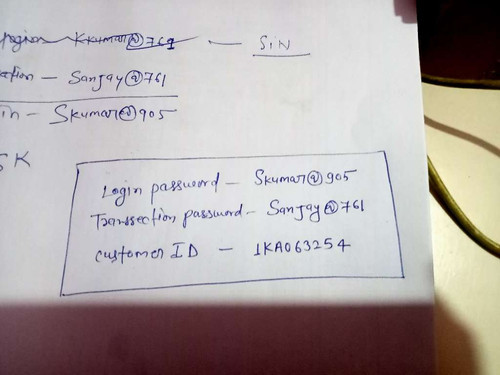 Kkumar@761 — SIN
— Sanjay@761
— Skumar@905
SK
Login password — Skumar@905
Transsection password — Sanjay@761
customer ID — 1KA063254